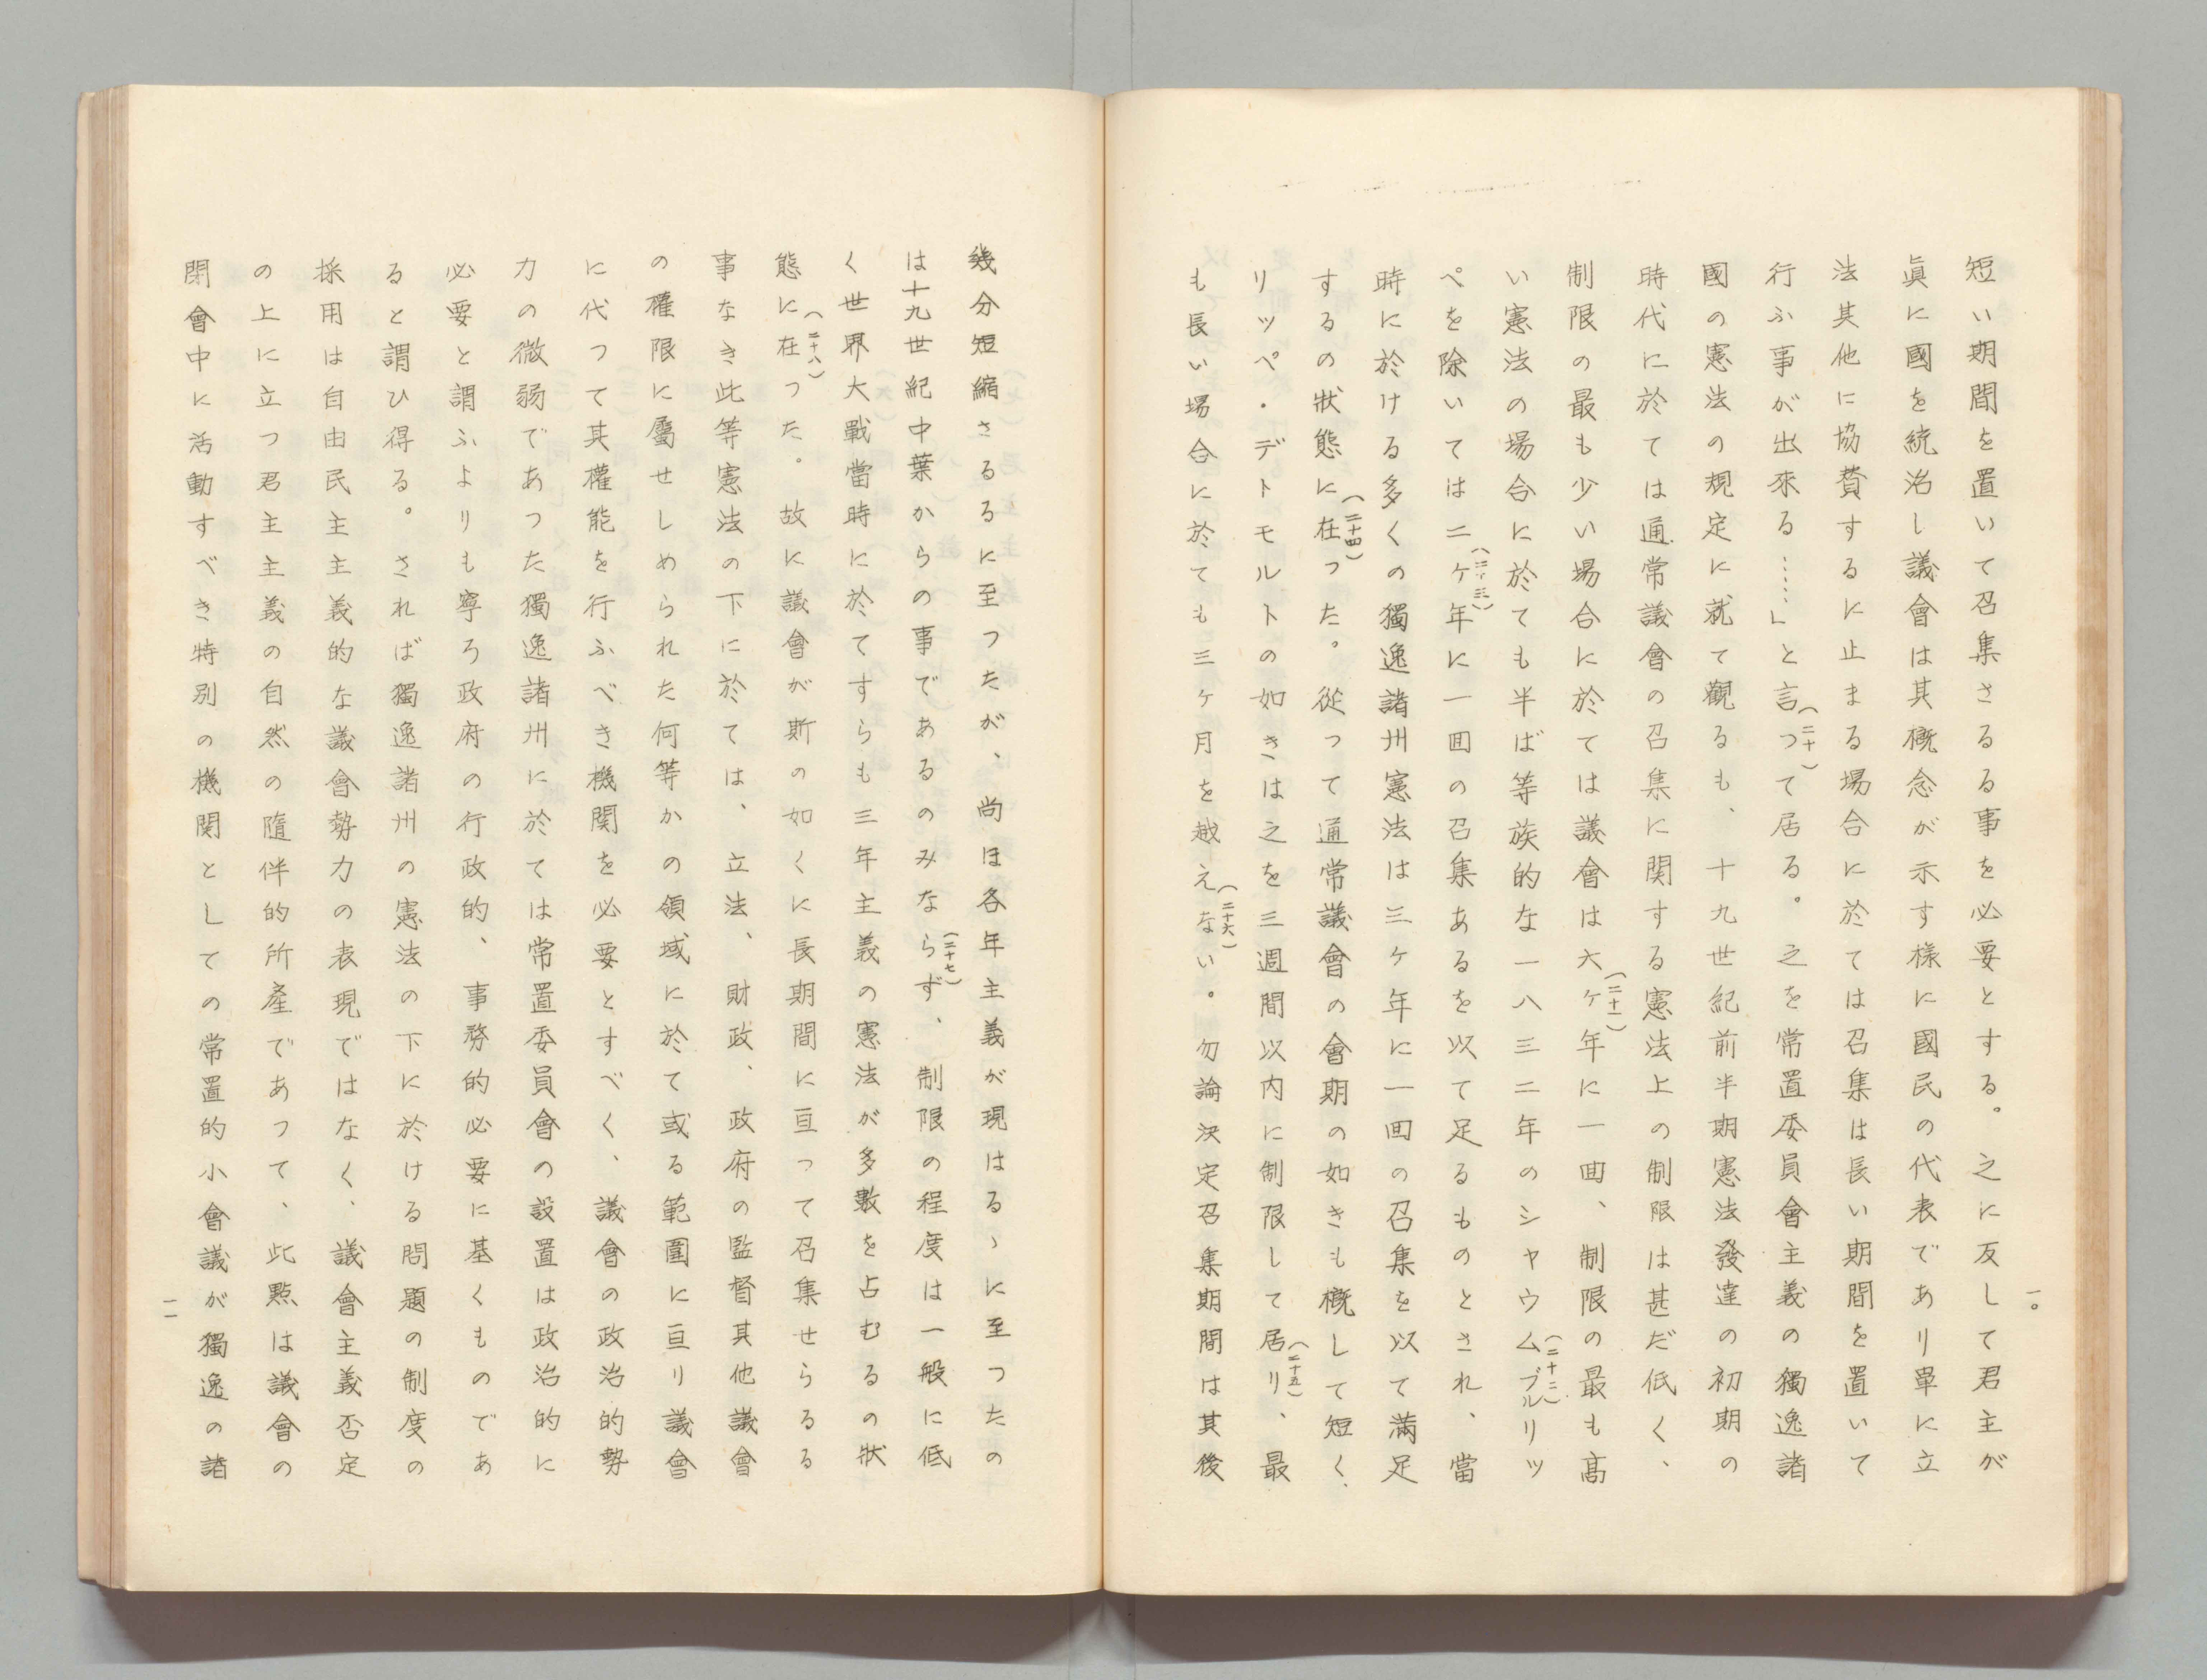 一〇
短い期間を置いて召集さるる事を必要とする。之に反して君主が
眞に國を統治し議會は其概念が示す様に國民の代表であり單に立
法其他に協賛するに止まる場合に於ては召集は長い期間を置いて
行ふ事が出來る……」と言つて(二十)居る。之を常置委員會主義の獨逸諸
國の憲法の規定に就て觀るも、十九世紀前半期憲法發達の初期の
時代に於ては通常議會の召集に関する憲法上の制限は甚だ低く、
制限の最も少い場合に於ては議會は六ケ年(二十一)に一囬、制限の最も高
い憲法の場合に於ても半ば等族的な一八三二年のシャウムブルリッ(二十二)
ペを除いては二ケ年(二十三)に一囬の召集あるを以て足るものとされ、當
時に於ける多くの獨逸諸州憲法は三ケ年に一囬の召集を以て満足
するの状態に在つた(二十四)。従って通常議會の會期の如きも概して短く、
リッペ・デトモルトの如きは之を三週間以内に制限して居り(二十五)、最
も長い場合に於ても三ケ月を越えない(二十六)。勿論決定召集期間は其後
幾分短縮さるるに至つたが、尚ほ各年主義が現はるゝに至つたの
は十九世紀中葉からの事であるのみならず(二十七)、制限の程度は一般に低
く世界大戰當時に於てすらも三年主義の憲法が多數を占むるの状
態に在つた(二十八)。故に議會が斯の如くに長期間に亘って召集せらるる
事なき此等憲法の下に於ては、立法、財政、政府の監督其他議會
の權限に屬せしめられた何等かの領域に於て或る範圍に亘り議會
に代つて其權能を行ふべき機関を必要とすべく、議會の政治的勢
力の微弱であつた獨逸諸州に於ては常置委員會の設置は政治的に
必要と謂ふよりも寧ろ政府の行政的、事務的必要に基くものであ
ると謂ひ得る。されば獨逸諸州の憲法の下に於ける問題の制度の
採用は自由民主主義的な議會勢力の表現ではなく、議會主義否定
の上に立つ君主主義の自然の隨伴的所產であつて、此點は議會の
閉會中に活動すべき特別の機関としての常置的小會議が獨逸の諸
一一